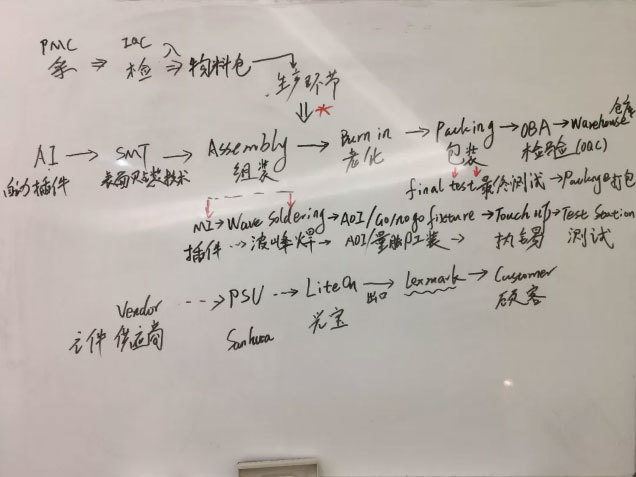 PMC IQC 入
⇒ 检 ⇒ 物料仓 →
生产环节
⇓ *
AI → SMT → Assembly → Burn in → Packing → OBA → Warehouse 仓库
自动插件 表面贴装技术 组装 老化 包装 检验 (OQC)
final test 最终测试 → Package打包
MI → Wave Soldering → AOI/Go/nogo fixture → Touch up → Test Station
插件 → 波峰焊 → AOI/ → 执锡 测试
Vendor → PSU → LiteOn → Lexmark → Customer
供应商 光宝 出口 顾客